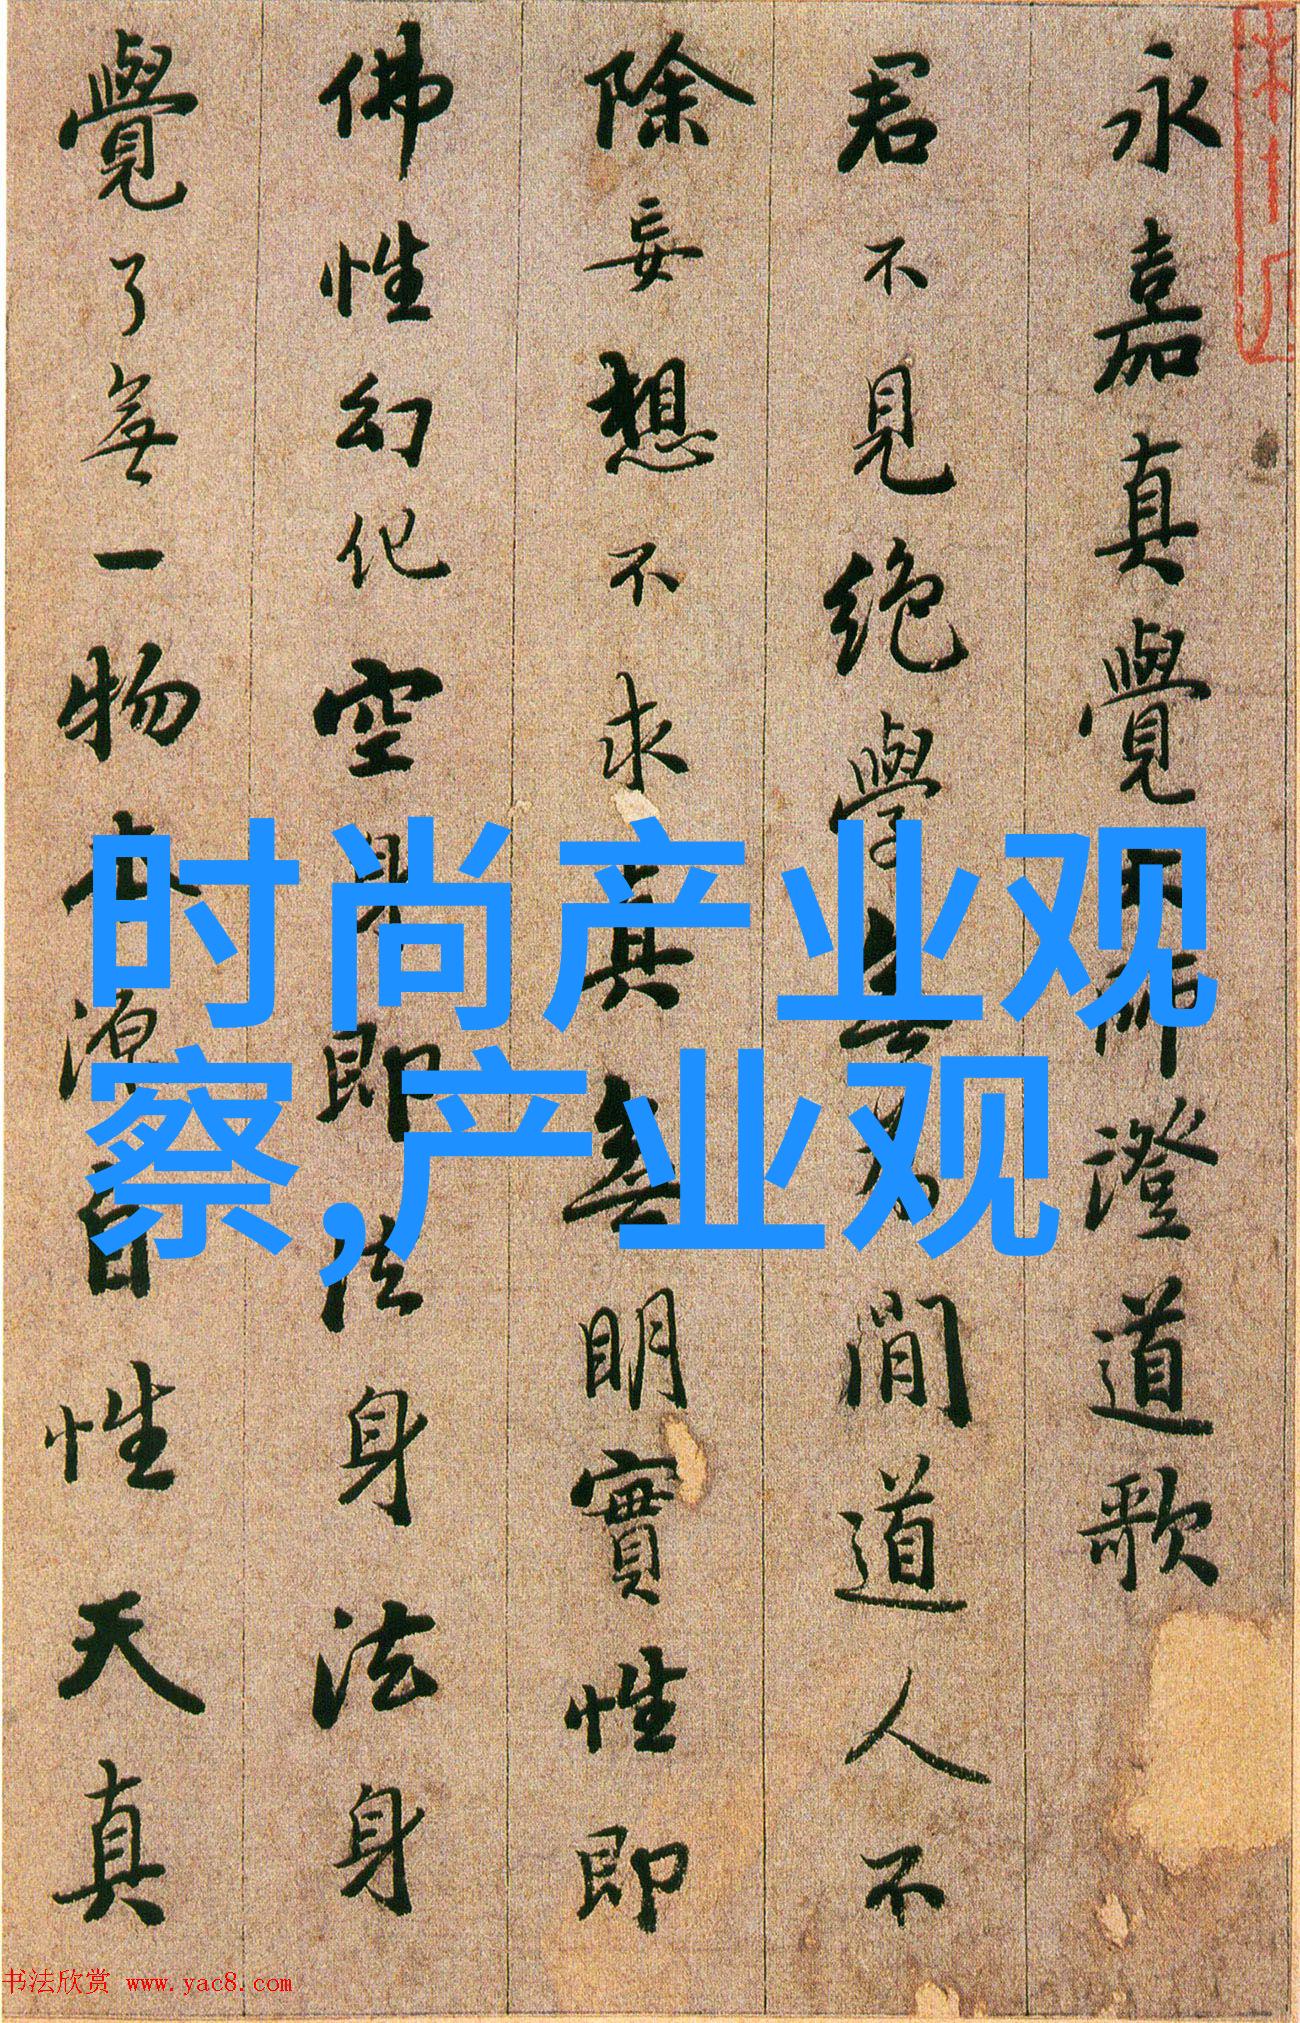 永嘉真覺大師澄道歌
君不見絕學無為閒道人不
除妄想不求真無明實性即
佛性幻化空身即法身法身
覺了無一物本源自性天真
时尚产业观
察,产业观
书法欣赏 www.yac8.com